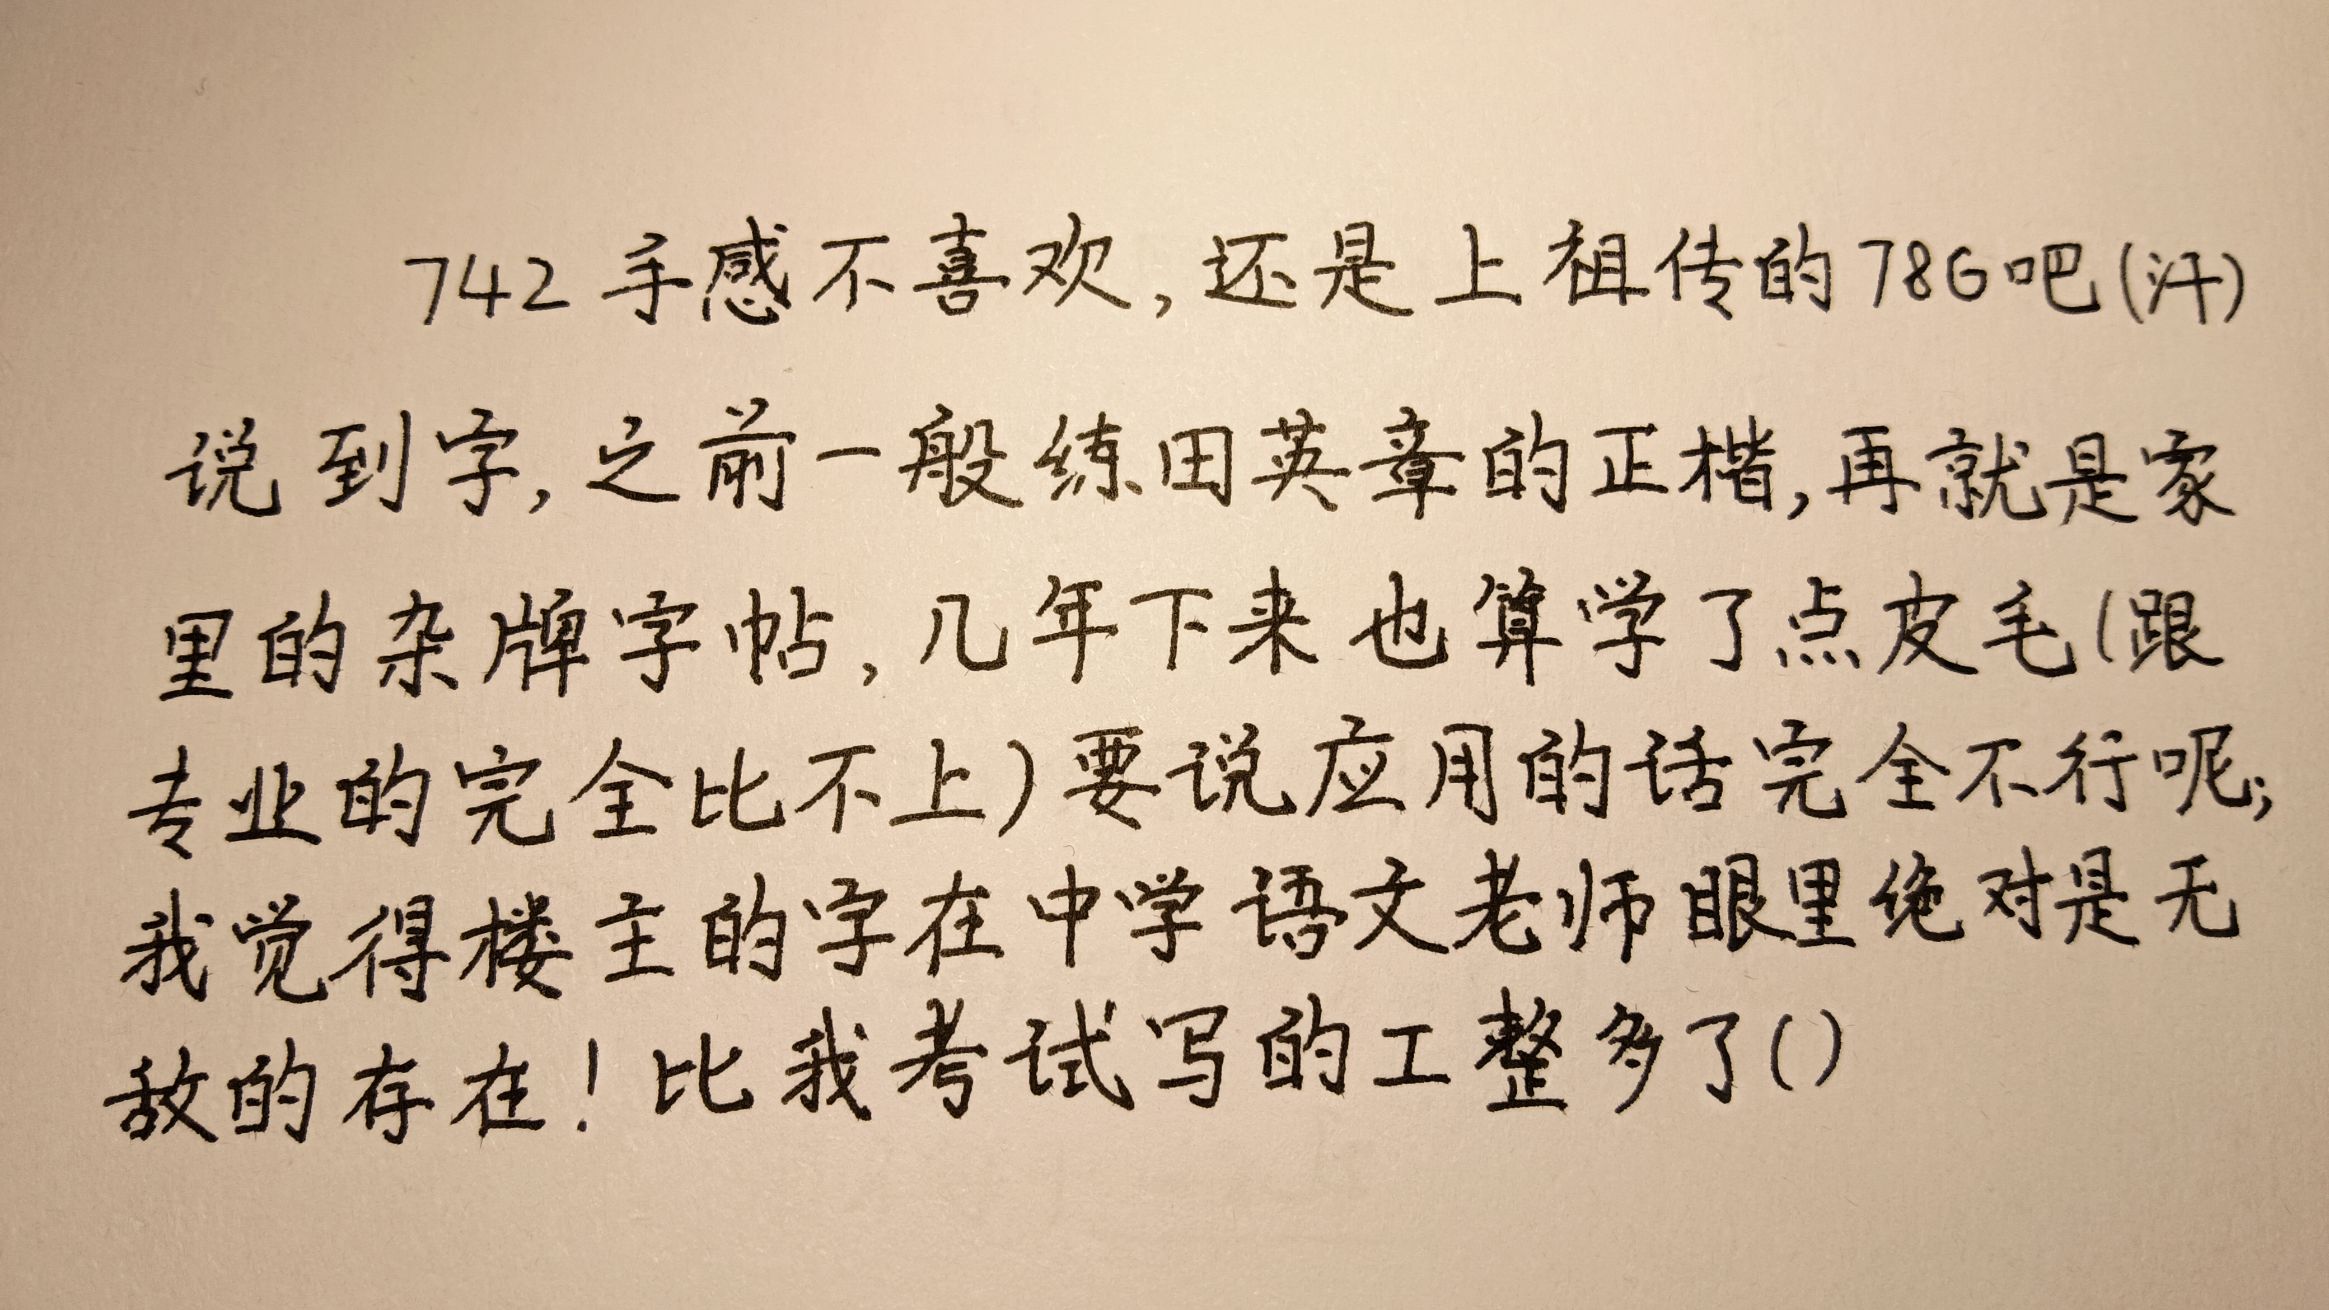 742手感不喜欢,还是上祖传的78G吧(汗)
说到字,之前一般练田英章的正楷,再就是家
里的杂牌字帖,几年下来也算学了点皮毛(跟
专业的完全比不上)要说应用的话完全不行呢;
我觉得楼主的字在中学语文老师眼里绝对是无
敌的存在!比我考试写的工整多了()